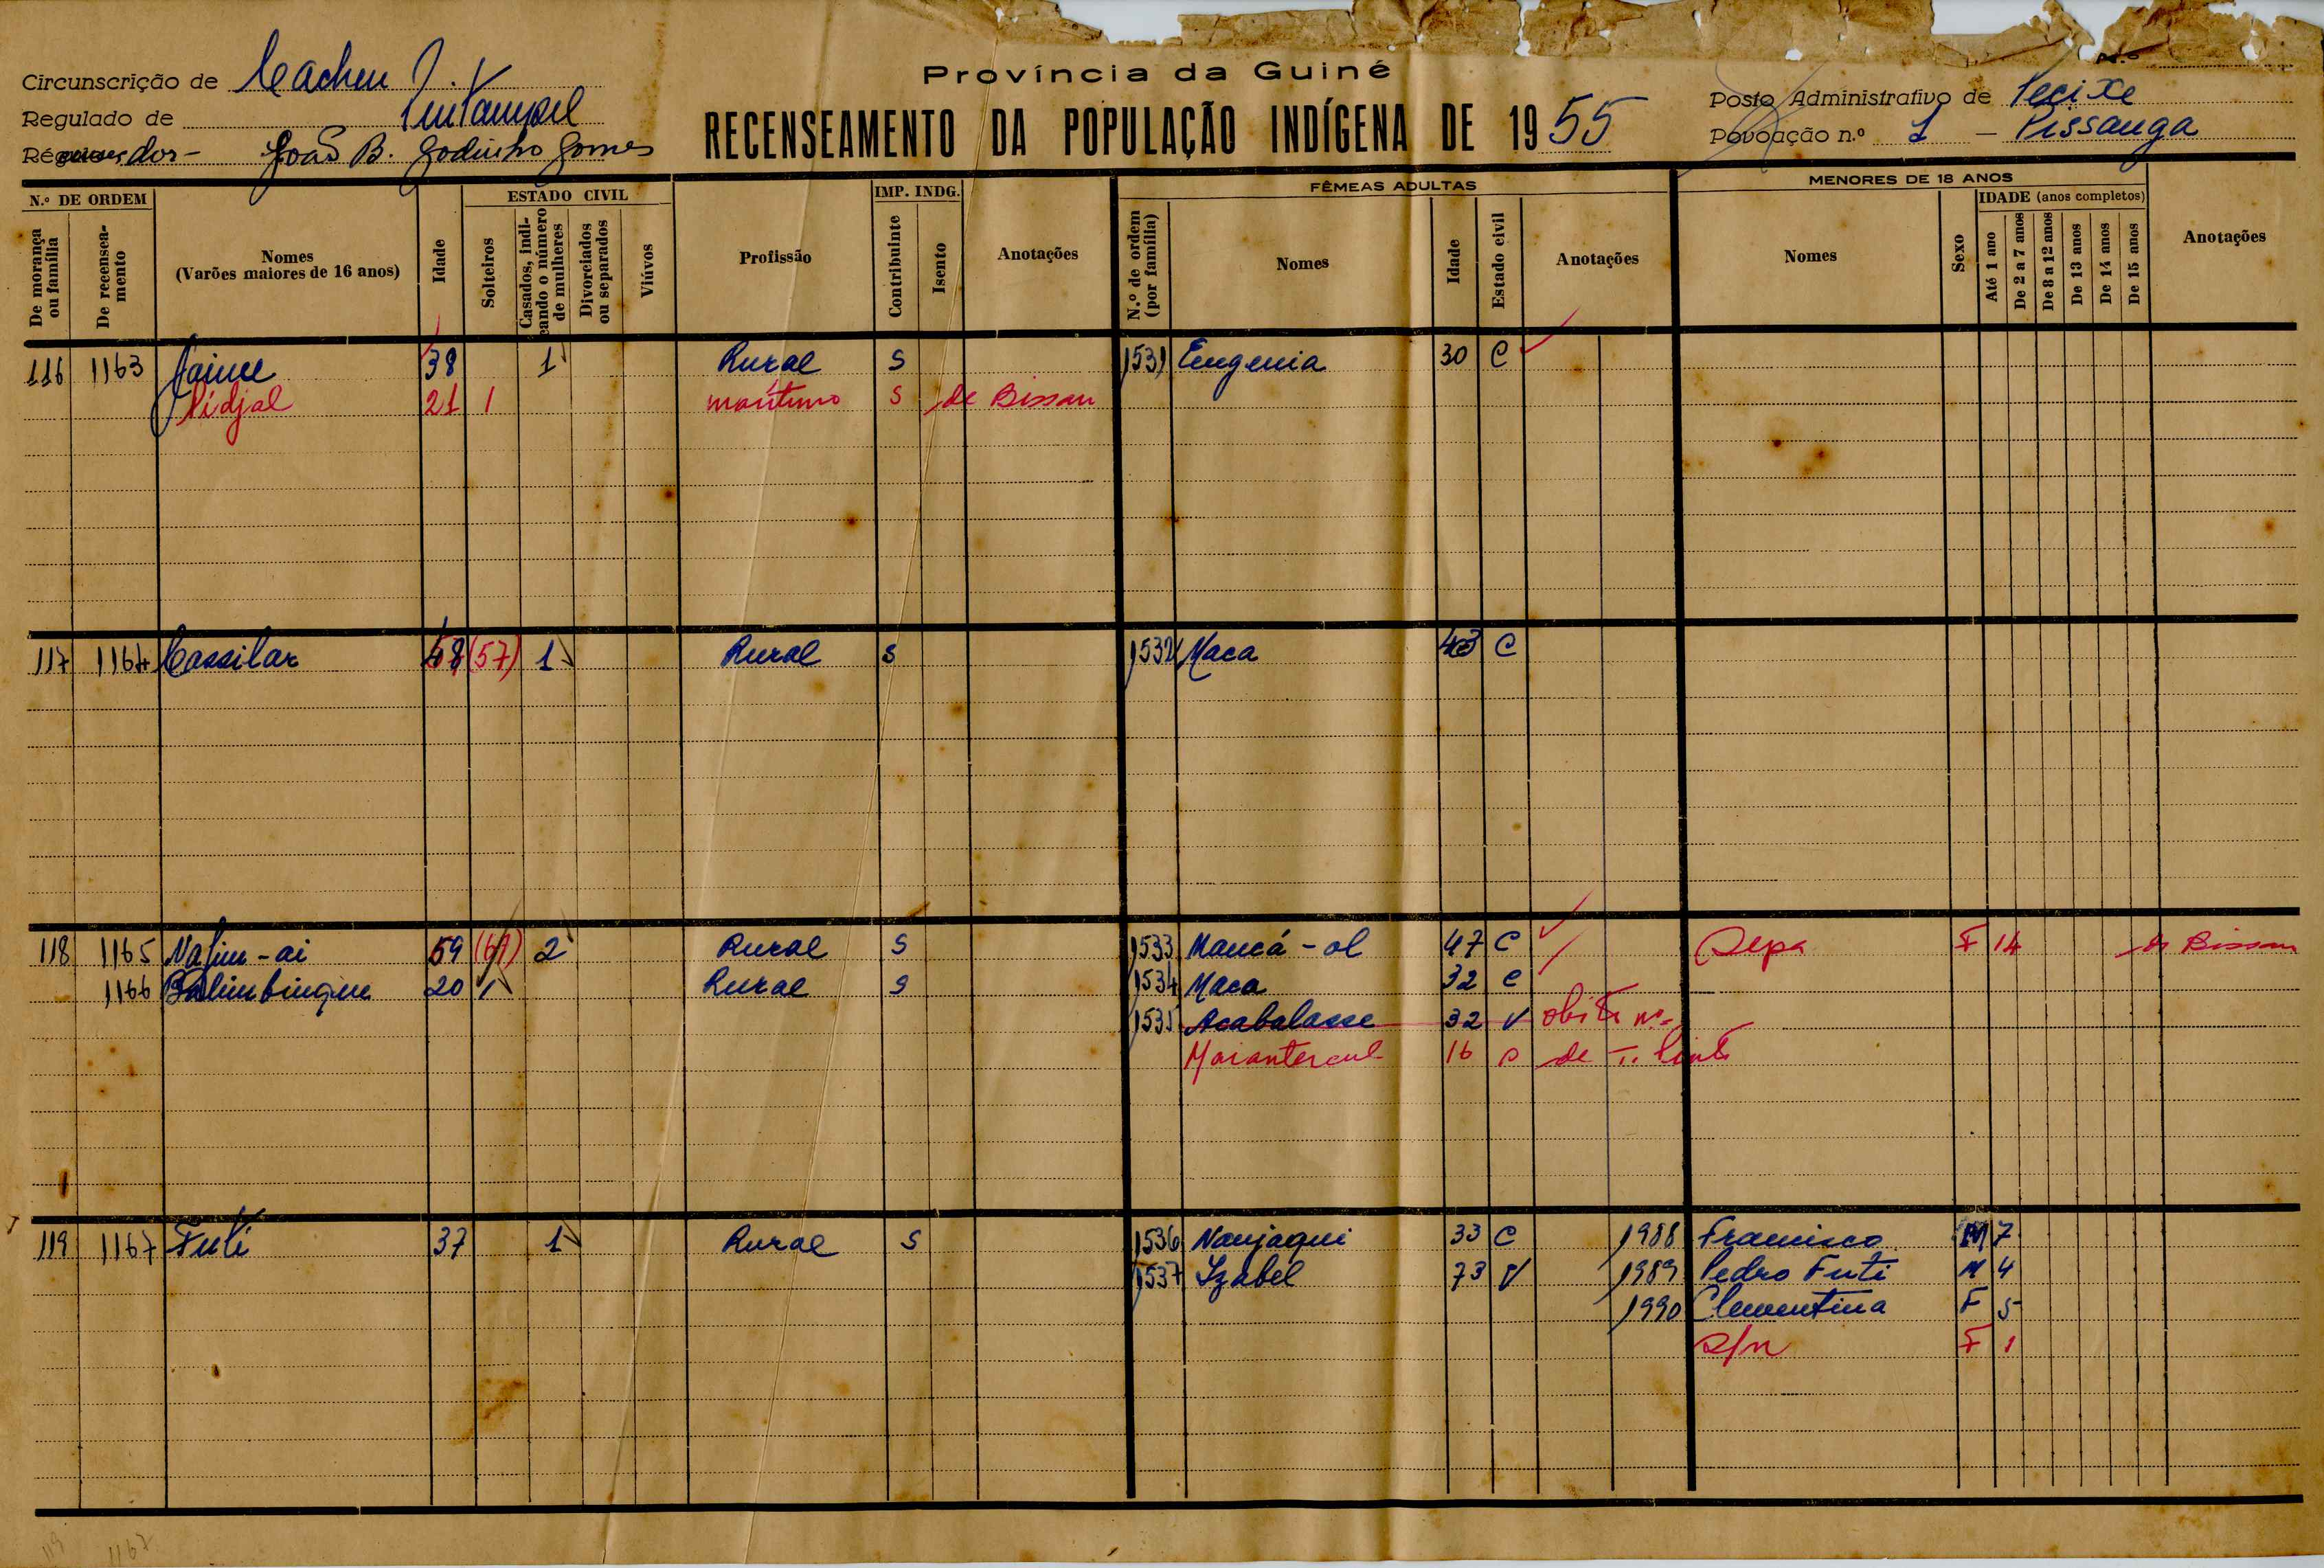 Província da Guiné
RECENSEAMENTO DA POPULAÇÃO INDÍGENA DE 1955
Circunscrição de Cacheu
Regulado de
João B. Godinho Gomes
N.º
Posto Administrativo de Pecixe
Povoação n.º 1 – Pissanga
N.º DE ORDEM
De morança ou família
De recenseamento
Nomes
(Varões maiores de 16 anos)
Idade
ESTADO CIVIL
Solteiros
Casados, indicando o número de mulheres
Divorciados ou separados
Viúvos
Profissão
IMP. INDG.
Contribuinte
Isento
Anotações
FÊMEAS ADULTAS
N.º de ordem (por família)
Nomes
Idade
Estado civil
Anotações
MENORES DE 18 ANOS
Nomes
Sexo
IDADE (anos completos)
Até 1 ano
De 2 a 7 anos
De 8 a 12 anos
De 13 anos
De 14 anos
De 15 anos
Anotações
116 1163 Jaime 38 1 Rural S 1531 Eugenia 30 C
Pidjal 21 1 marítimo S de Bissau
117 1164 Cassilar (57) 1 Rural S 1532 Maca 43 C
118 1165 Nafim-ai 59 2 Rural S 1533 Mancá-ol 47 C Sepa F 14 de Bissau
1166 20 1 Rural S 1534 Maca 32 C
1535 Acabalasse 32 V
16 S de
119 1167 Futi 37 1 Rural S 1536 Nanjaqui 33 C 1988 Francisco M 7
1537 Izabel 73 V 1989 Pedro Futi M 4
1990 Clementina F 5
S/n F 1
119 1167